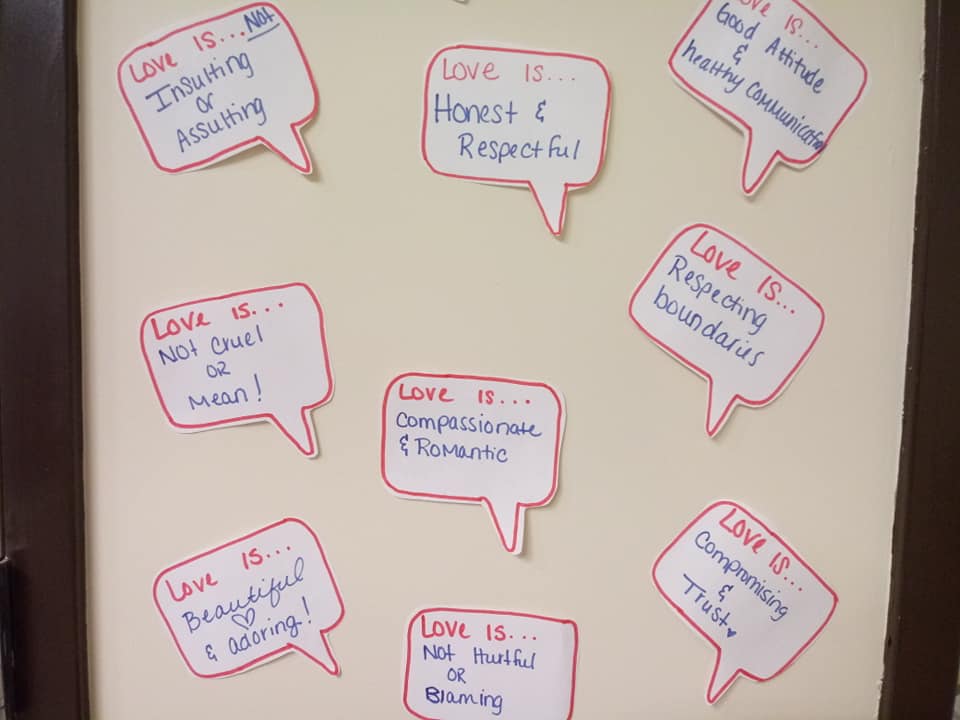 Love is...NOT
Insulting
or
Assulting
Love is...
Honest &
Respectful
Love is...
Good Attitude
&
healthy communication
Love is...
NOT cruel
OR
Mean!
Love is...
Compassionate
& Romantic
Love is...
Respecting
boundaries
Love is...
Beautiful
& adoring!
Love is...
NOT Hurtful
OR
Blaming
Love is...
Compromising
&
Trust